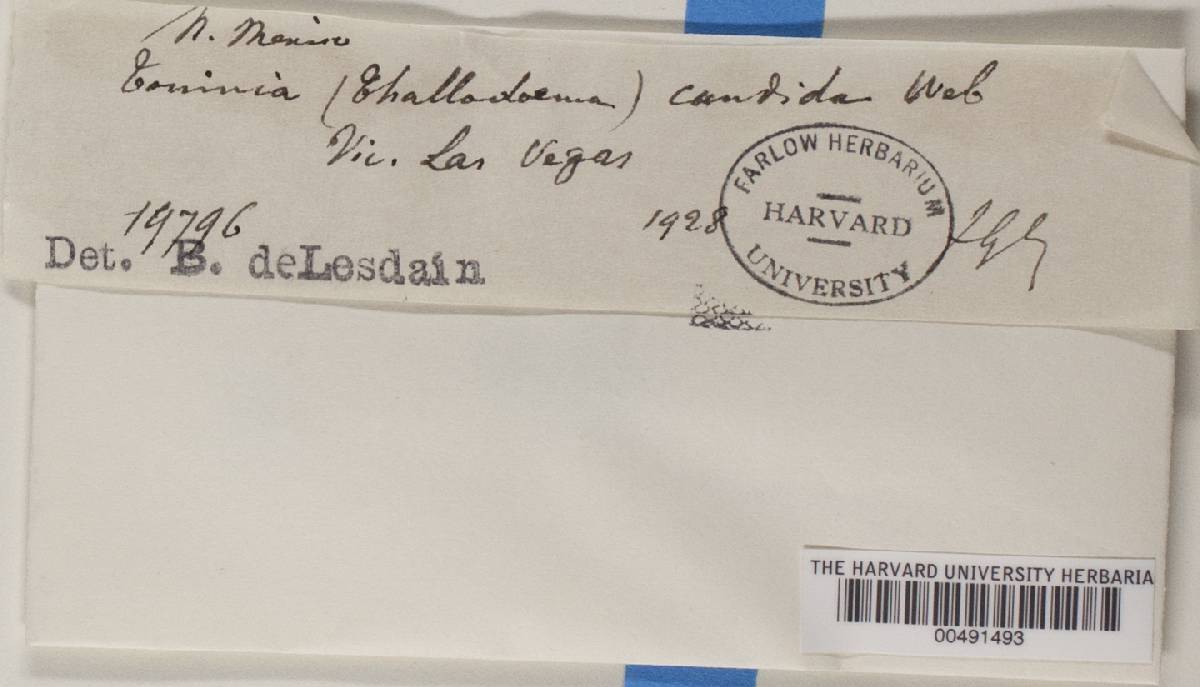 N. Mexico
Toninia (Thalloedema) candida Web
Vic. Las Vegas
19796
1928
Det. B. deLesdain
FARLOW HERBARIUM
HARVARD
UNIVERSITY
THE HARVARD UNIVERSITY HERBARIA
00491493